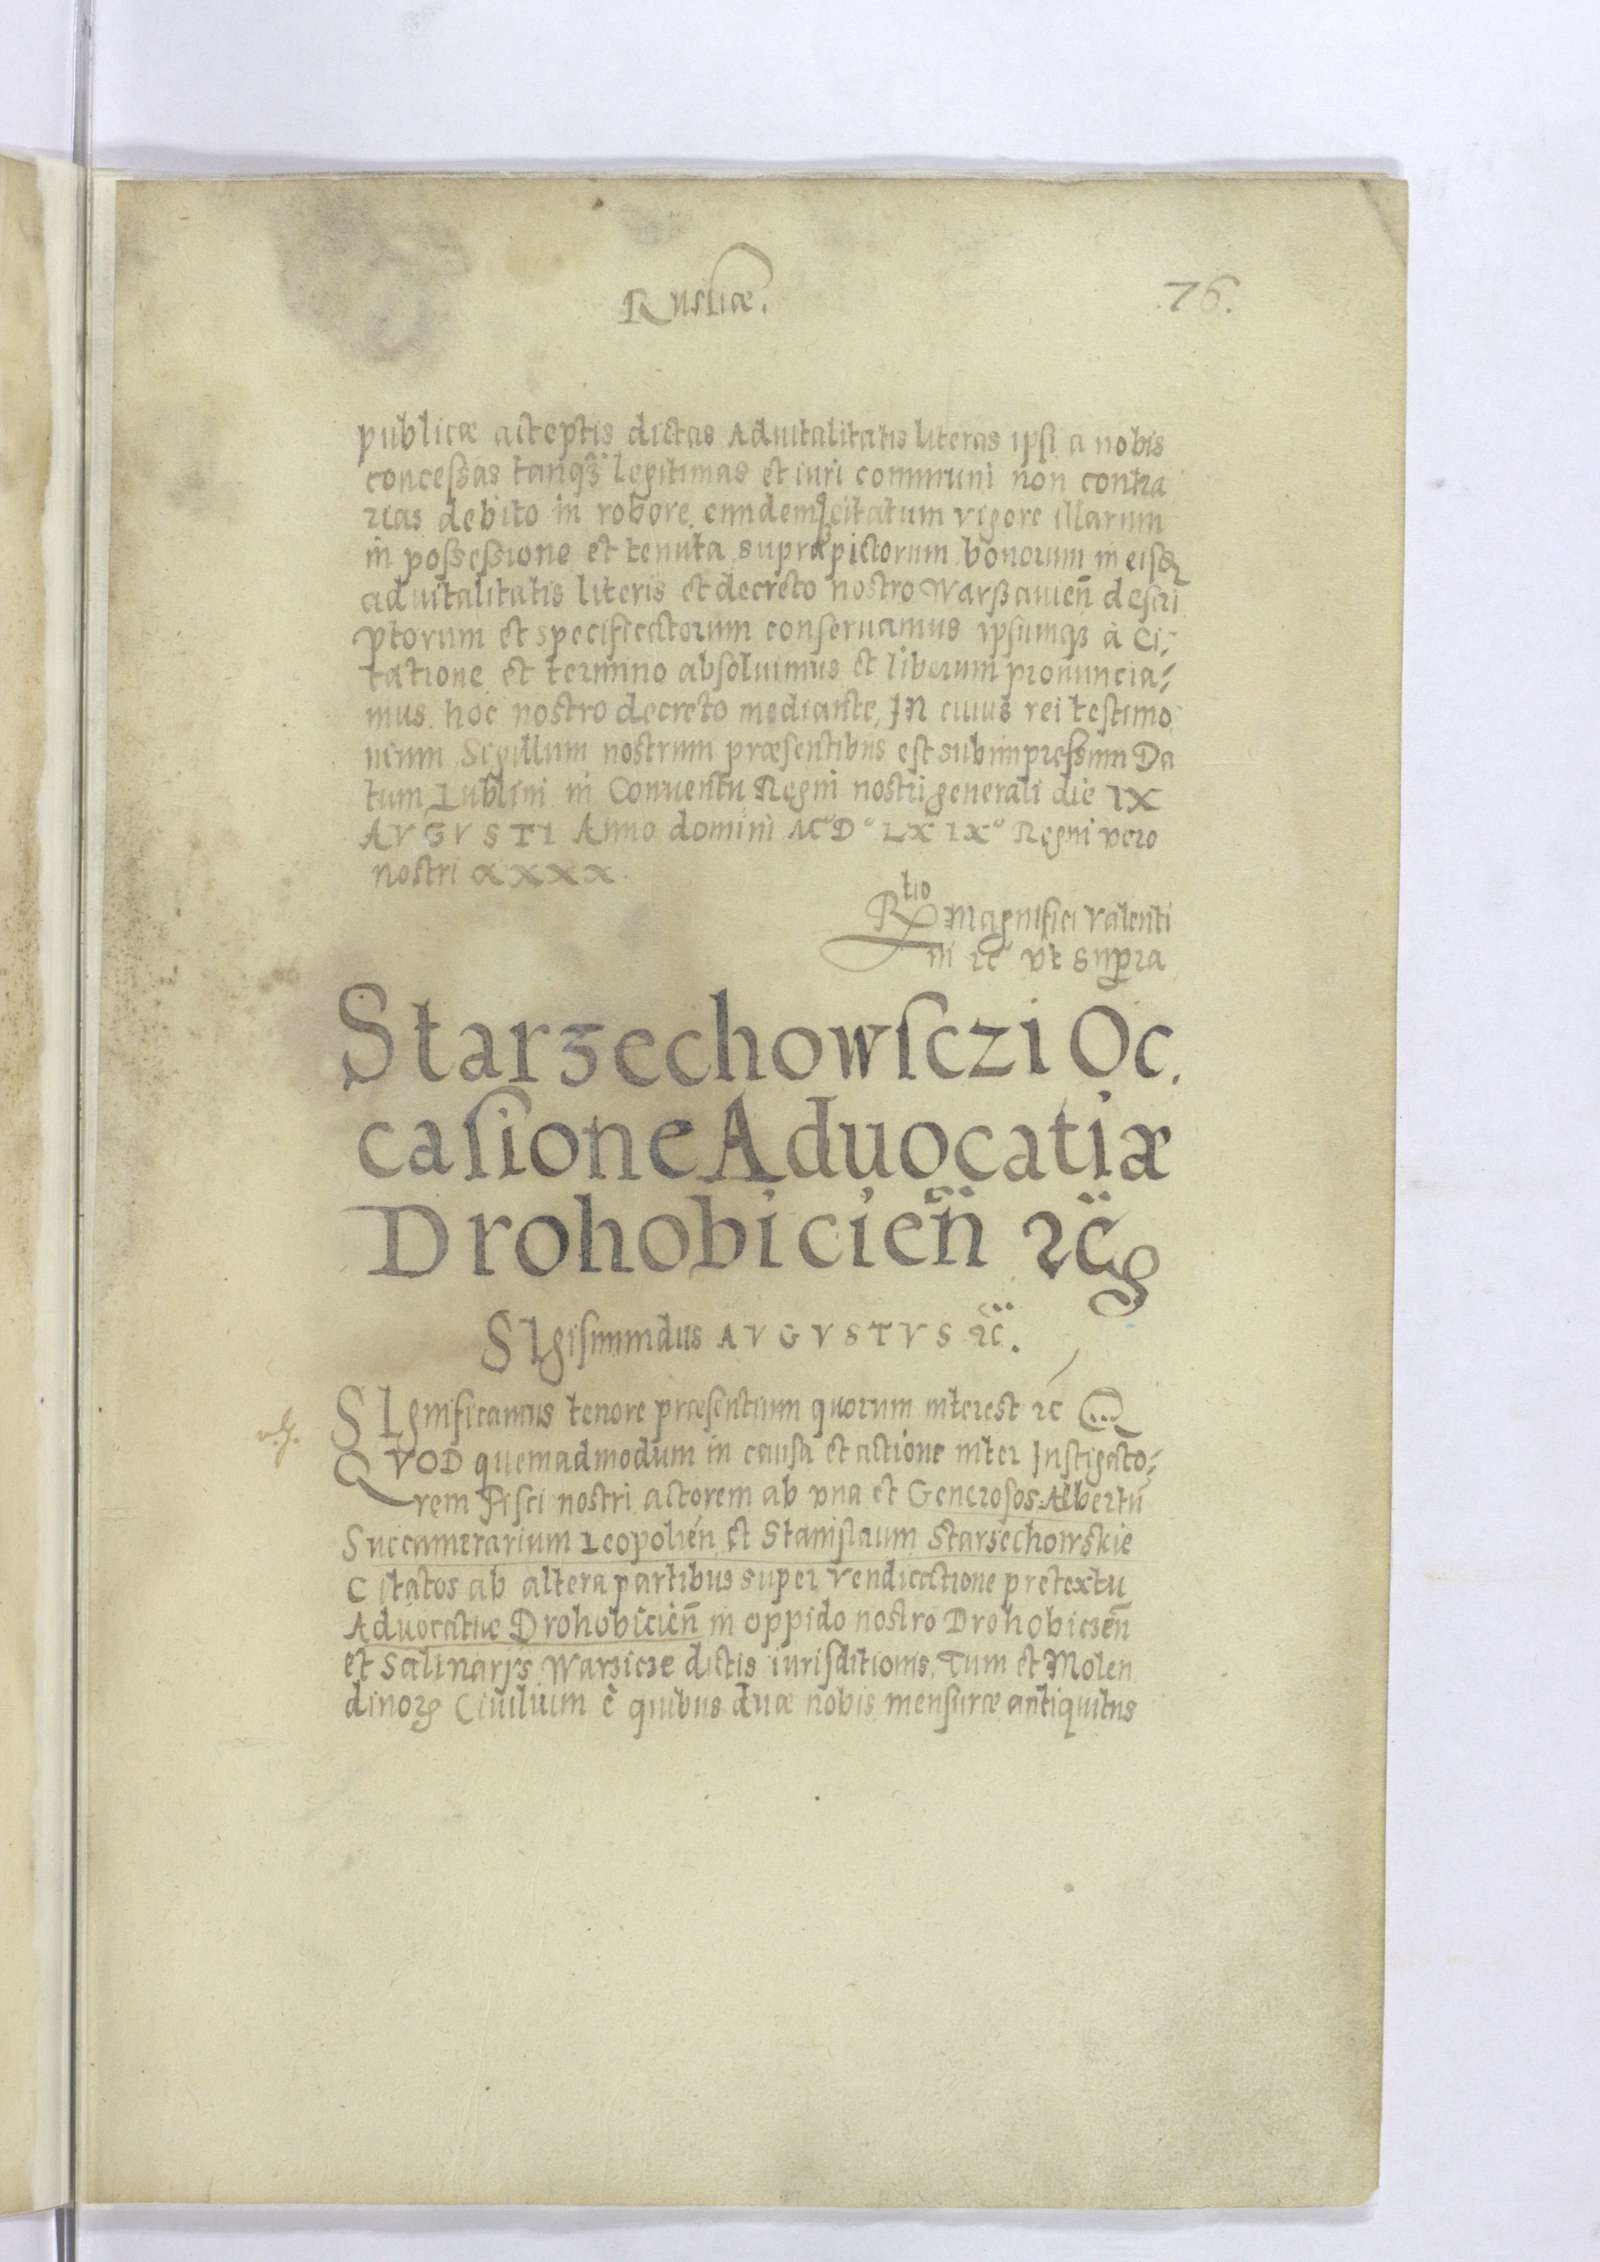 Russiæ.
76.
publicæ acceptis dictas Aduitalitatis literas ipsi a nobis
conceßas tanqꝫ legitimas et iuri communi non contra
rias debito in robore eundemqꝫ citatum vigore illarum
in poßeßione et tenuta suprapictorum bonorum in eisdē
aduitalitatis literis et decreto nostro Warßauien̄ descri
ptorum et specificatorum conseruamus ipsumqꝫ à Ci-
tatione et termino absoluimus et liberum pronuncia-
mus hoc nostro decreto mediante, In cuius rei testimo
nium Sigillum nostrum præsentibus est subimpressum Da
tum Lublini in Conuentu Regni nostri generali die IX
AVGVSTI Anno domini MD° LXIX° Regni vero
nostri XXXX.
Rtio Magnifici Valenti
ni ꝛc vt supra
Starzechowsczi Oc.
casione Aduocatiæ
Drohobicien̄ ꝛc̈
SIgismundus AVGVSTVS ꝛc̈.
SIgnificamus tenore præsentium quorum interest ꝛc
QVOD quemadmodum in causa et actione inter Instigato-
rem Fisci nostri actorem ab vna et Generosos Albertū
Succamerarium Leopolien̄ et Stanislaum Starzechowskie
Citatos ab altera partibus super vendicatione pretextu
Aduocatiae Drohobicien̄ in oppido nostro Drohobicien̄
et Salinarijs Warzicze dictis iurisditionis, Tum et Molen
dinoꝝ Ciuilium è quibus duæ nobis mensuræ antiquitus